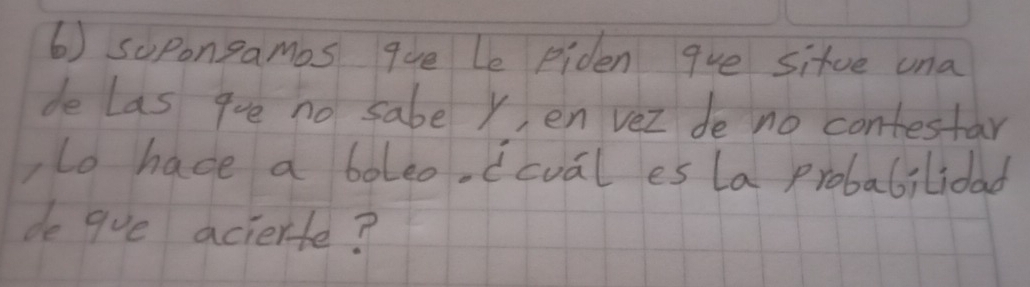 6) supongamos que le piden que sitúe una
de las que no sabe y, en vez de no contestar
, lo hace a boleo. ¿cuál es la probabilidad
de que acierte?